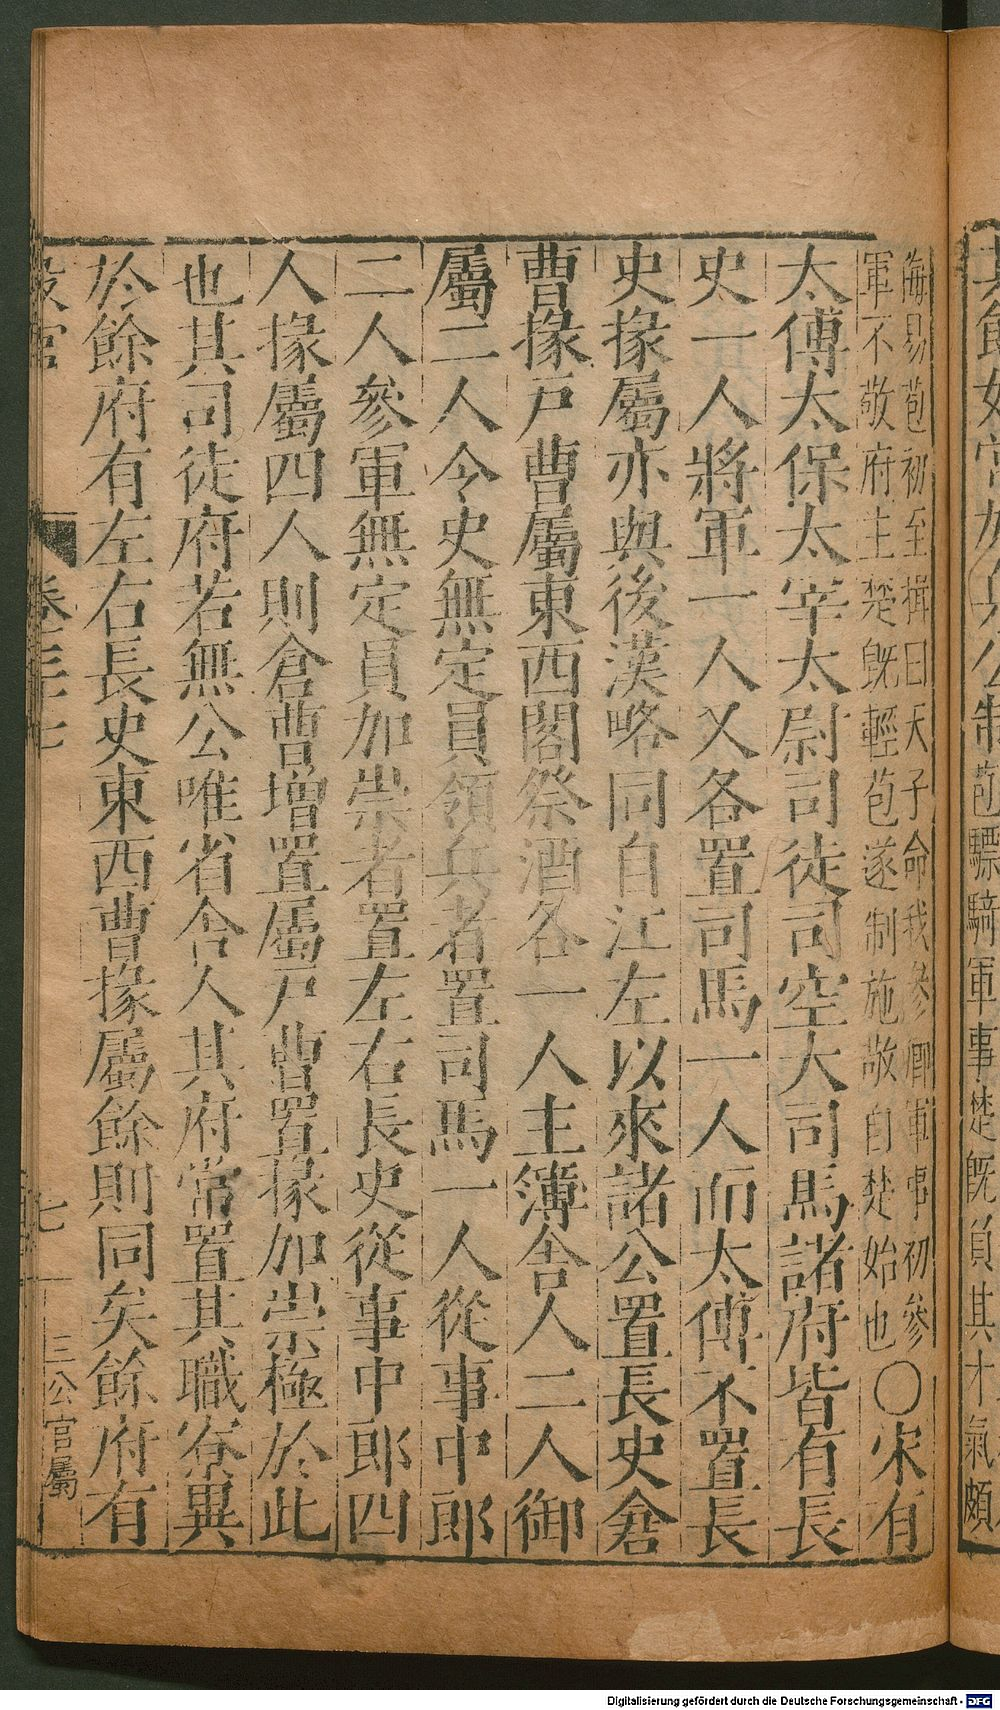 其餘如常加兵公制苞驃騎軍事楚旣負其才氣頗
侮易苞初至揖曰天子命我參卿軍事初參
軍不敬府主楚旣輕苞遂制施敬自楚始也〇宋有
太傅太保太宰太尉司徒司空大司馬諸府皆有長
史一人將軍一人又各置司馬一人而太傅不置長
史掾屬亦與後漢略同自江左以來諸公置長史倉
曹掾戶曹屬東西閤祭酒各一人主簿舍人二人御
屬二人令史無定員領兵者置司馬一人從事中郎
二人參軍無定員加崇者置左右長史從事中郎四
人掾屬四人則倉曹增置屬戶曹置掾加崇極於此
也其司徒府若無公唯省舍人其府常置其職寮異
於餘府有左右長史東西曹掾屬餘則同矣餘府有
設官 卷三十七 七 三公官屬
Digitalisierung gefördert durch die Deutsche Forschungsgemeinschaft - DFG